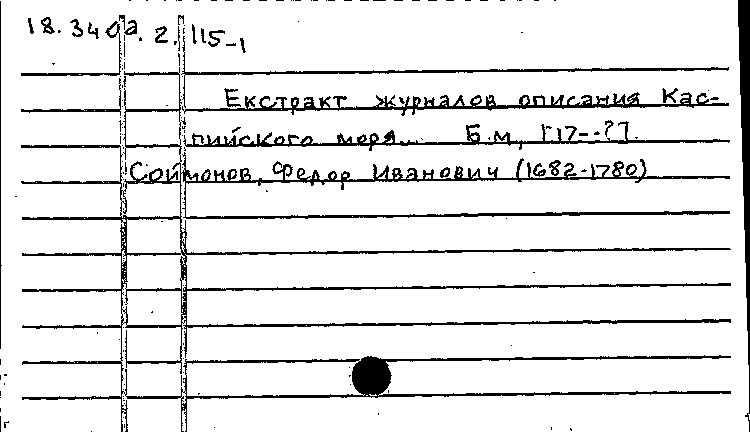 18.340а.2.115-1
Екстракт журналов описания Кас-
пийского моря... Б.м, [17--?].
Соймонов, Федор Иванович (1682-1780)